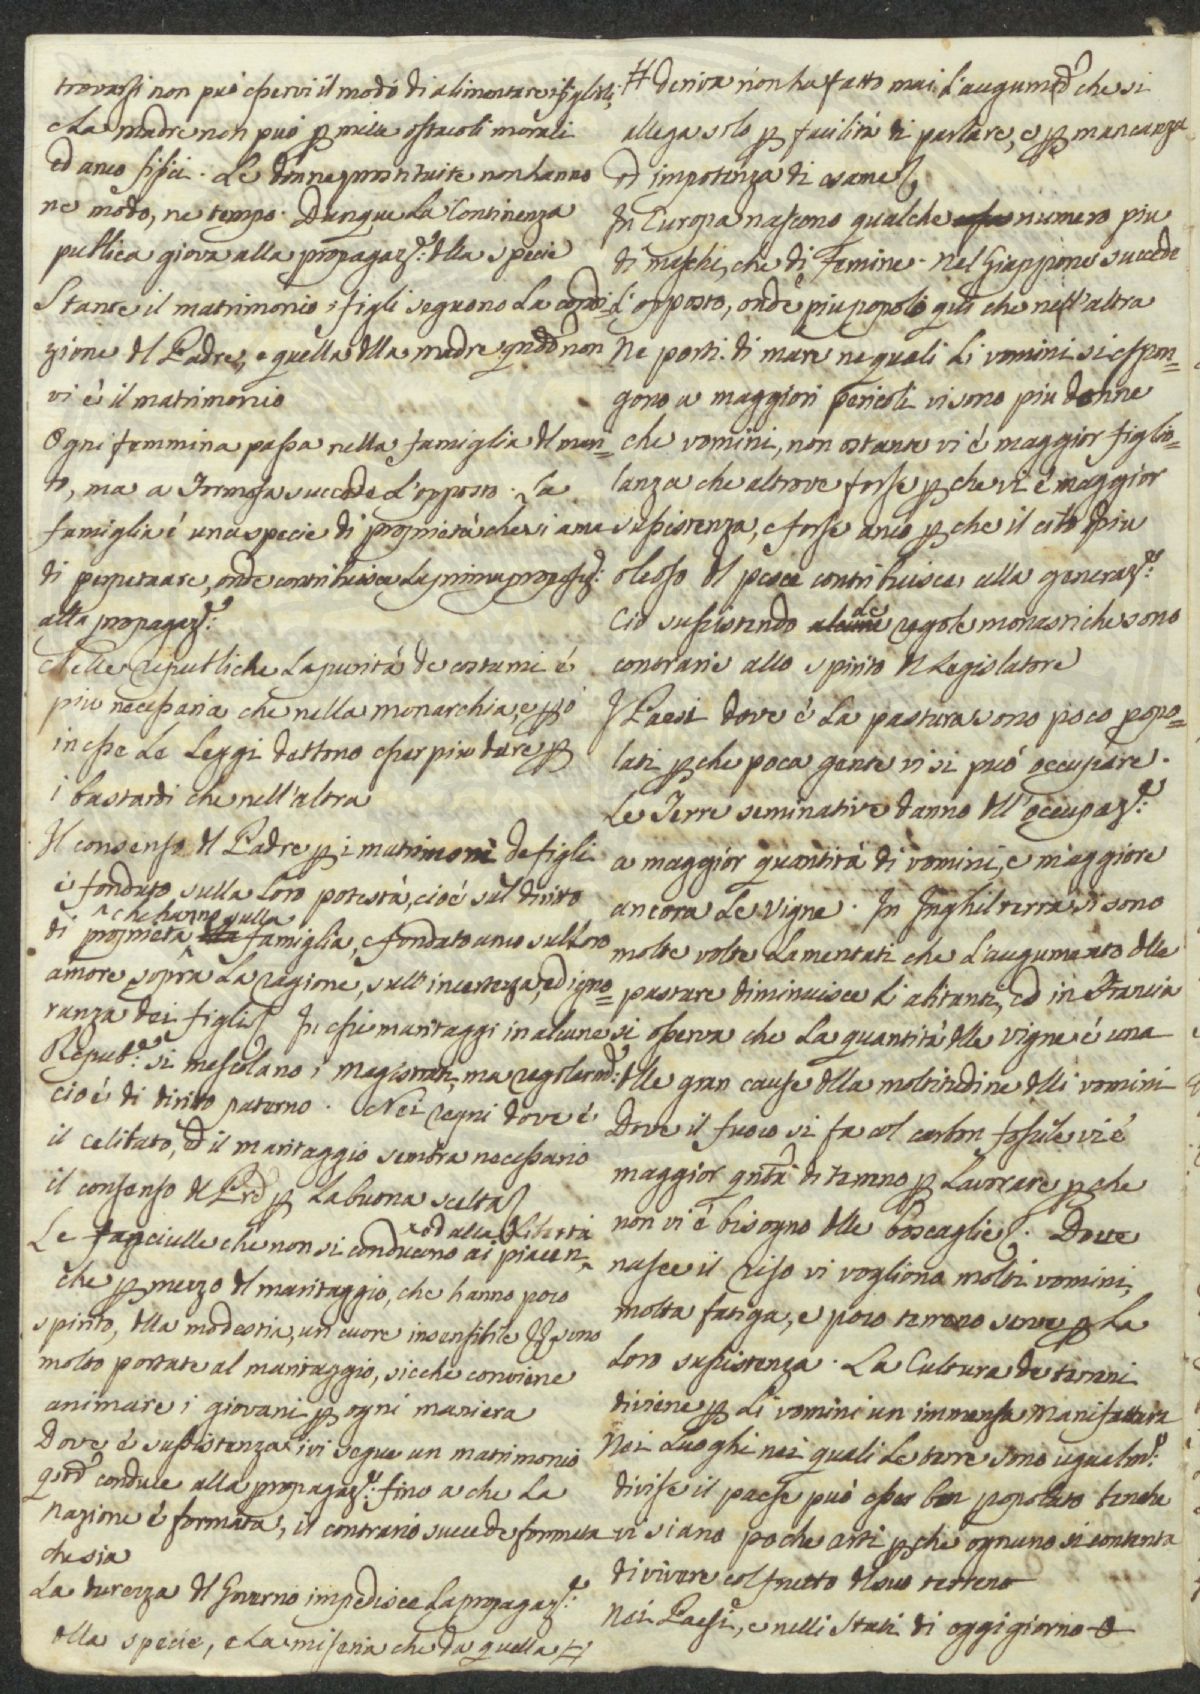 trovarsi non può esservi il modo di alimentare i figli:
e la madre non può p mille ostacoli morali
ed anco fisici. Le donne prostituite non hanno
ne modo, ne tempo. Dunque la Continenza
publica giova alla propagaz.e dlla specie
Stante il matrimonio i figli seguono la condi=
zione dl Padre, e quella dlla madre qndo non
vi é il matrimonio
Ogni femmina passa nella famiglia dl mari=
to, ma a Formosa succede l'opposto. La
famiglia é una specie di proprietá che si ama
di perpetuare, onde contribuisce
alla propagaz.e
Nelle republiche la puritá de costumi é
piu necessaria che nella monarchia, e p ó
in esse le Leggi debbono esser piu dure p
i bastardi che nell'altra
Il consenso dl Padre p i matrimoni de figli
é fondato sulla loro potestá, cioé sul diritto
di proprietá che hanno sulla famiglia, e fondato anco sul loro
amore, sopra la ragione, sull'incertezza, ed igno=
ranza dei figli. In essi maritaggi in alcune
Repub.e si mescolano i Magistrati, ma regolarmd.
cioé di diritto paterno. Nei regni dove é
il celibato, ed il maritaggio sembra necessario
il consenso dl Prd p la buona scelta
Le fanciulle che non si conducono ed alla libertá ai piacer
che p mezzo dl maritaggio, che hanno poco
spirito, dlla modestia, un cuore insensibile sono
molto portate al maritaggio, sicche conviene
animare i giovani p ogni maniera
Dove é sussistenza ivi segue un matrimonio
qnd conduce alla propagaz.e fino a che la
nazione é formata, il contrario succede formata
che sia
La durezza dl Governo impedisce la propagaz.e
dlla specie, e la miseria che da quella #
# deriva non ha fatto mai l'augumtd che si
allega solo p facilitá di parlare, e p mancanza
ed impotenza di esame
In Europa nascono qualche numero piu
di maschi, che di Femine. Nel Giappone succede
l'opposto, onde é piu popolo qui che nell'altra
Ne porti di mare ne quali li vomini si espon=
gono a maggiori pericoli vi sono piu donne
che vomini, non ostante vi é maggior figlio=
lanza che altrove forse p che vi é maggior
sussistenza, e forse anco p che il cibo piu
oleoso dl pesce contribuisce alla generaz.e
Ció sussistendo le regole monastiche sono
contrarie allo spirito dl Legislatore
I Paesi dove é la pastura sono poco popo=
lati p che poca gente vi si puó occupare.
Le Terre seminative danno dll'occupaz.e
a maggior quantitá di vomini, e maggiore
ancora le vigne. In Inghilterra si sono
molte volte lamentati che l'augumento dlle
pasture diminuisce li abitanti, ed in Francia
si osserva che la quantitá dlle vigne é una
dlle gran cause dlla moltitudine dlli vomini
Dove il fuoco si fa col carbon fossile vi é
maggior qntá di terreno p lavorare p che
non vi é bisogno dlle boscaglie. Dove
nasce il riso vi vogliono molti vomini,
molta fatiga, e poco terreno serve p la
loro sussistenza. La Cultura de terreni
diviene p li vomini un immensa manifattura
Nei luoghi nei quali le terre sono ugualm.e
divise il paese puó esser ben popolato benche
vi siano poche arti p che ognuno si contenta
di vivere col frutto dl suo terreno
Nei Paesi, e nelli Stati di oggi giorno